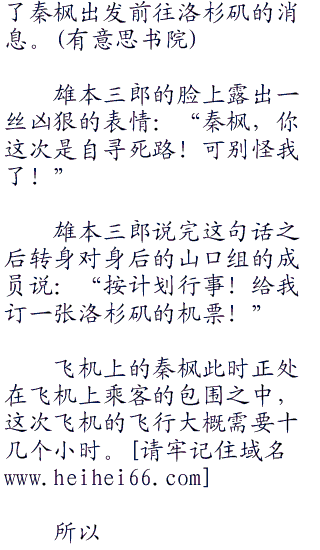 了秦枫出发前往洛杉矶的消
息。(有意思书院)
雄本三郎的脸上露出一
丝凶狠的表情：“秦枫，你
这次是自寻死路！可别怪我
了！”
雄本三郎说完这句话之
后转身对身后的山口组的成
员说：“按计划行事！给我
订一张洛杉矶的机票！”
飞机上的秦枫此时正处
在飞机上乘客的包围之中，
这次飞机的飞行大概需要十
几个小时。[请牢记住域名
www.heihei66.com]
所以